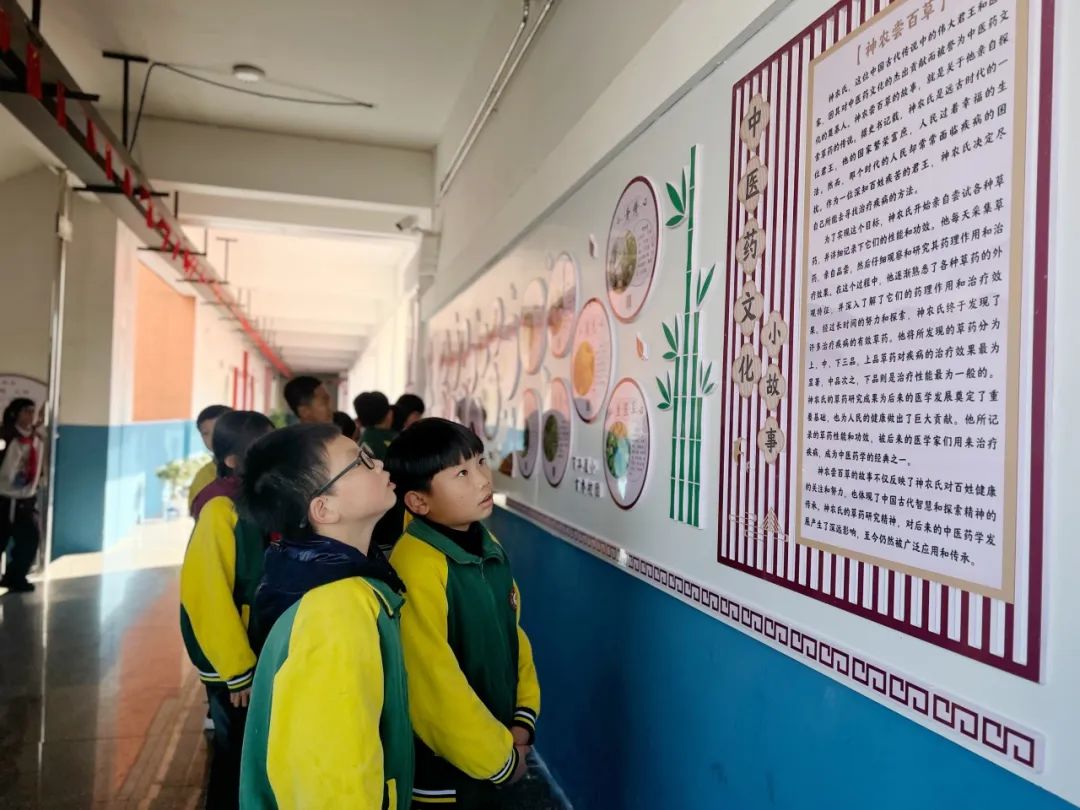 中医药文化
小故事
【神农尝百草】
神农氏，这位中国古代传说中的伟大君王和医
家，因其对中医药文化的杰出贡献而被誉为中医药文
化的奠基人。神农尝百草的故事，就是关于他亲自探
索草药的传说。据史书记载，神农氏是远古时代的一
位君王，他的国家繁荣富庶，人民过着幸福的生
活。然而，那个时代的人民却常常面临疾病的困
扰。作为一位深知百姓疾苦的君王，神农氏决定尽
自己所能去寻找治疗疾病的方法。
为了实现这个目标，神农氏开始亲自尝试各种草
药，并详细记录下它们的性能和功效。他每天采集草
药，亲自品尝，然后仔细观察和研究其药理作用和治
疗效果。在这个过程中，他逐渐熟悉了各种草药的外
观特征，并深入了解了它们的药理作用和治疗效
果。经过长时间的努力和探索，神农氏终于发现了
许多治疗疾病的有效草药。他将所发现的草药分为
上、中、下三品，上品草药对疾病的治疗效果最为
显著，中品次之，下品则是治疗性能最为一般的。
神农氏的草药研究成果为后来的医学发展奠定了重
要基础，也为人民的健康做出了巨大贡献。他所记
录的草药性能和功效，被后来的医学家们用来治疗
疾病，成为中医药学的经典之一。
神农尝百草的故事不仅反映了神农氏对百姓健康
的关注和努力，也体现了中国古代智慧和探索精神的
传承。神农氏的草药研究精神，对后来的中医药学发
展产生了深远影响，至今仍然被广泛应用和传承。